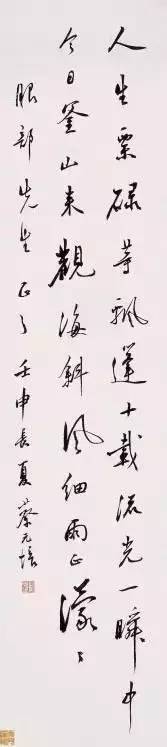 人生栗碌等飘蓬十载流光一瞬中
今日釜山来觀海斜风细雨正濛〻
服部先生正之壬申長夏蔡元培